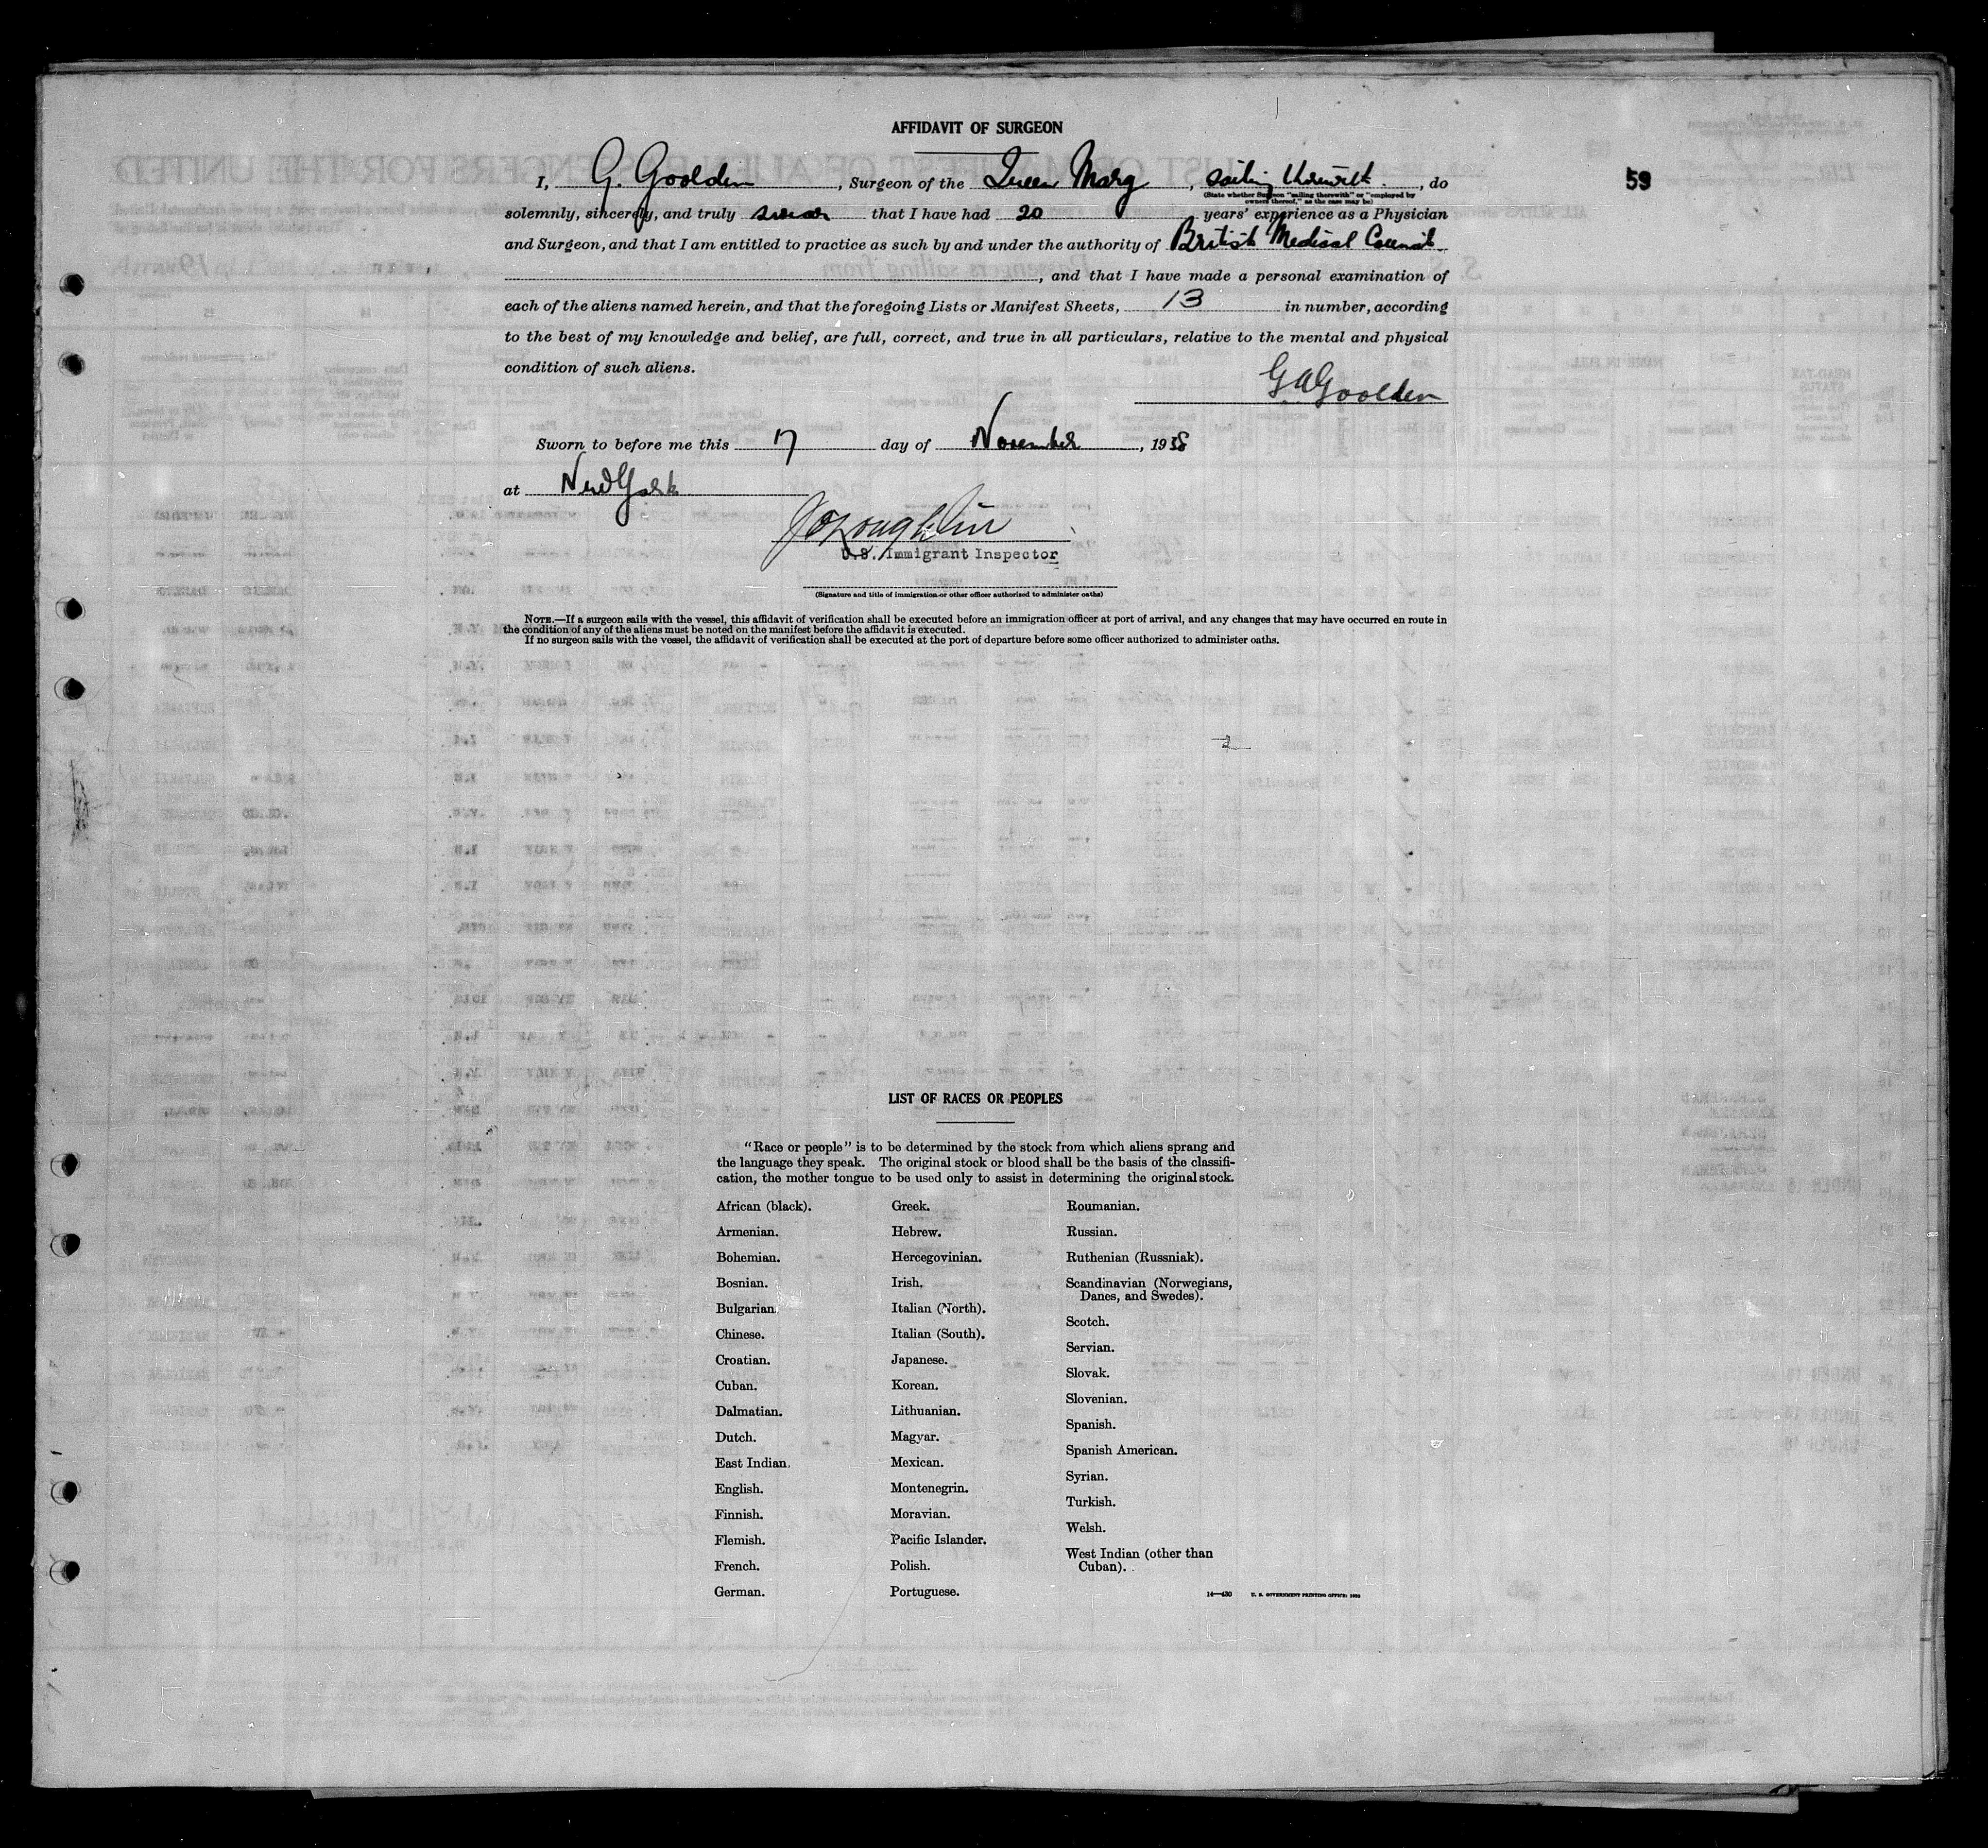 AFFIDAVIT OF SURGEON
59
I, G. Goolden, Surgeon of the Queen Mary, sailing therewith, do
(State whether Surgeon "sailing therewith" or "employed by
owners thereof," as the case may be)
solemnly, sincerely, and truly swear that I have had 20 years' experience as a Physician
and Surgeon, and that I am entitled to practice as such by and under the authority of British Medical Council
, and that I have made a personal examination of
each of the aliens named herein, and that the foregoing Lists or Manifest Sheets, 13 in number, according
to the best of my knowledge and belief, are full, correct, and true in all particulars, relative to the mental and physical
condition of such aliens.
G A Goolden
Sworn to before me this 17 day of November, 1938
at New York
J O Loughlin
U.S. Immigrant Inspector
(Signature and title of immigration or other officer authorized to administer oaths)
NOTE.—If a surgeon sails with the vessel, this affidavit of verification shall be executed before an immigration officer at port of arrival, and any changes that may have occurred en route in
the condition of any of the aliens must be noted on the manifest before the affidavit is executed.
If no surgeon sails with the vessel, the affidavit of verification shall be executed at the port of departure before some officer authorized to administer oaths.
LIST OF RACES OR PEOPLES
"Race or people" is to be determined by the stock from which aliens sprang and
the language they speak. The original stock or blood shall be the basis of the classifi-
cation, the mother tongue to be used only to assist in determining the original stock.
African (black).
Armenian.
Bohemian.
Bosnian.
Bulgarian.
Chinese.
Croatian.
Cuban.
Dalmatian.
Dutch.
East Indian.
English.
Finnish.
Flemish.
French.
German.
Greek.
Hebrew.
Hercegovinian.
Irish.
Italian (North).
Italian (South).
Japanese.
Korean.
Lithuanian.
Magyar.
Mexican.
Montenegrin.
Moravian.
Pacific Islander.
Polish.
Portuguese.
Roumanian.
Russian.
Ruthenian (Russniak).
Scandinavian (Norwegians,
Danes, and Swedes).
Scotch.
Servian.
Slovak.
Slovenian.
Spanish.
Spanish American.
Syrian.
Turkish.
Welsh.
West Indian (other than
Cuban).
14—430 U. S. GOVERNMENT PRINTING OFFICE: